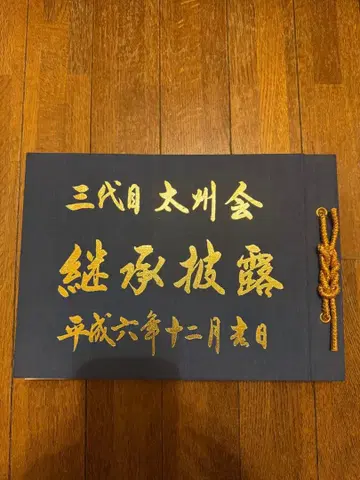 三代目 太州会
継承披露
平成六年十二月吉日